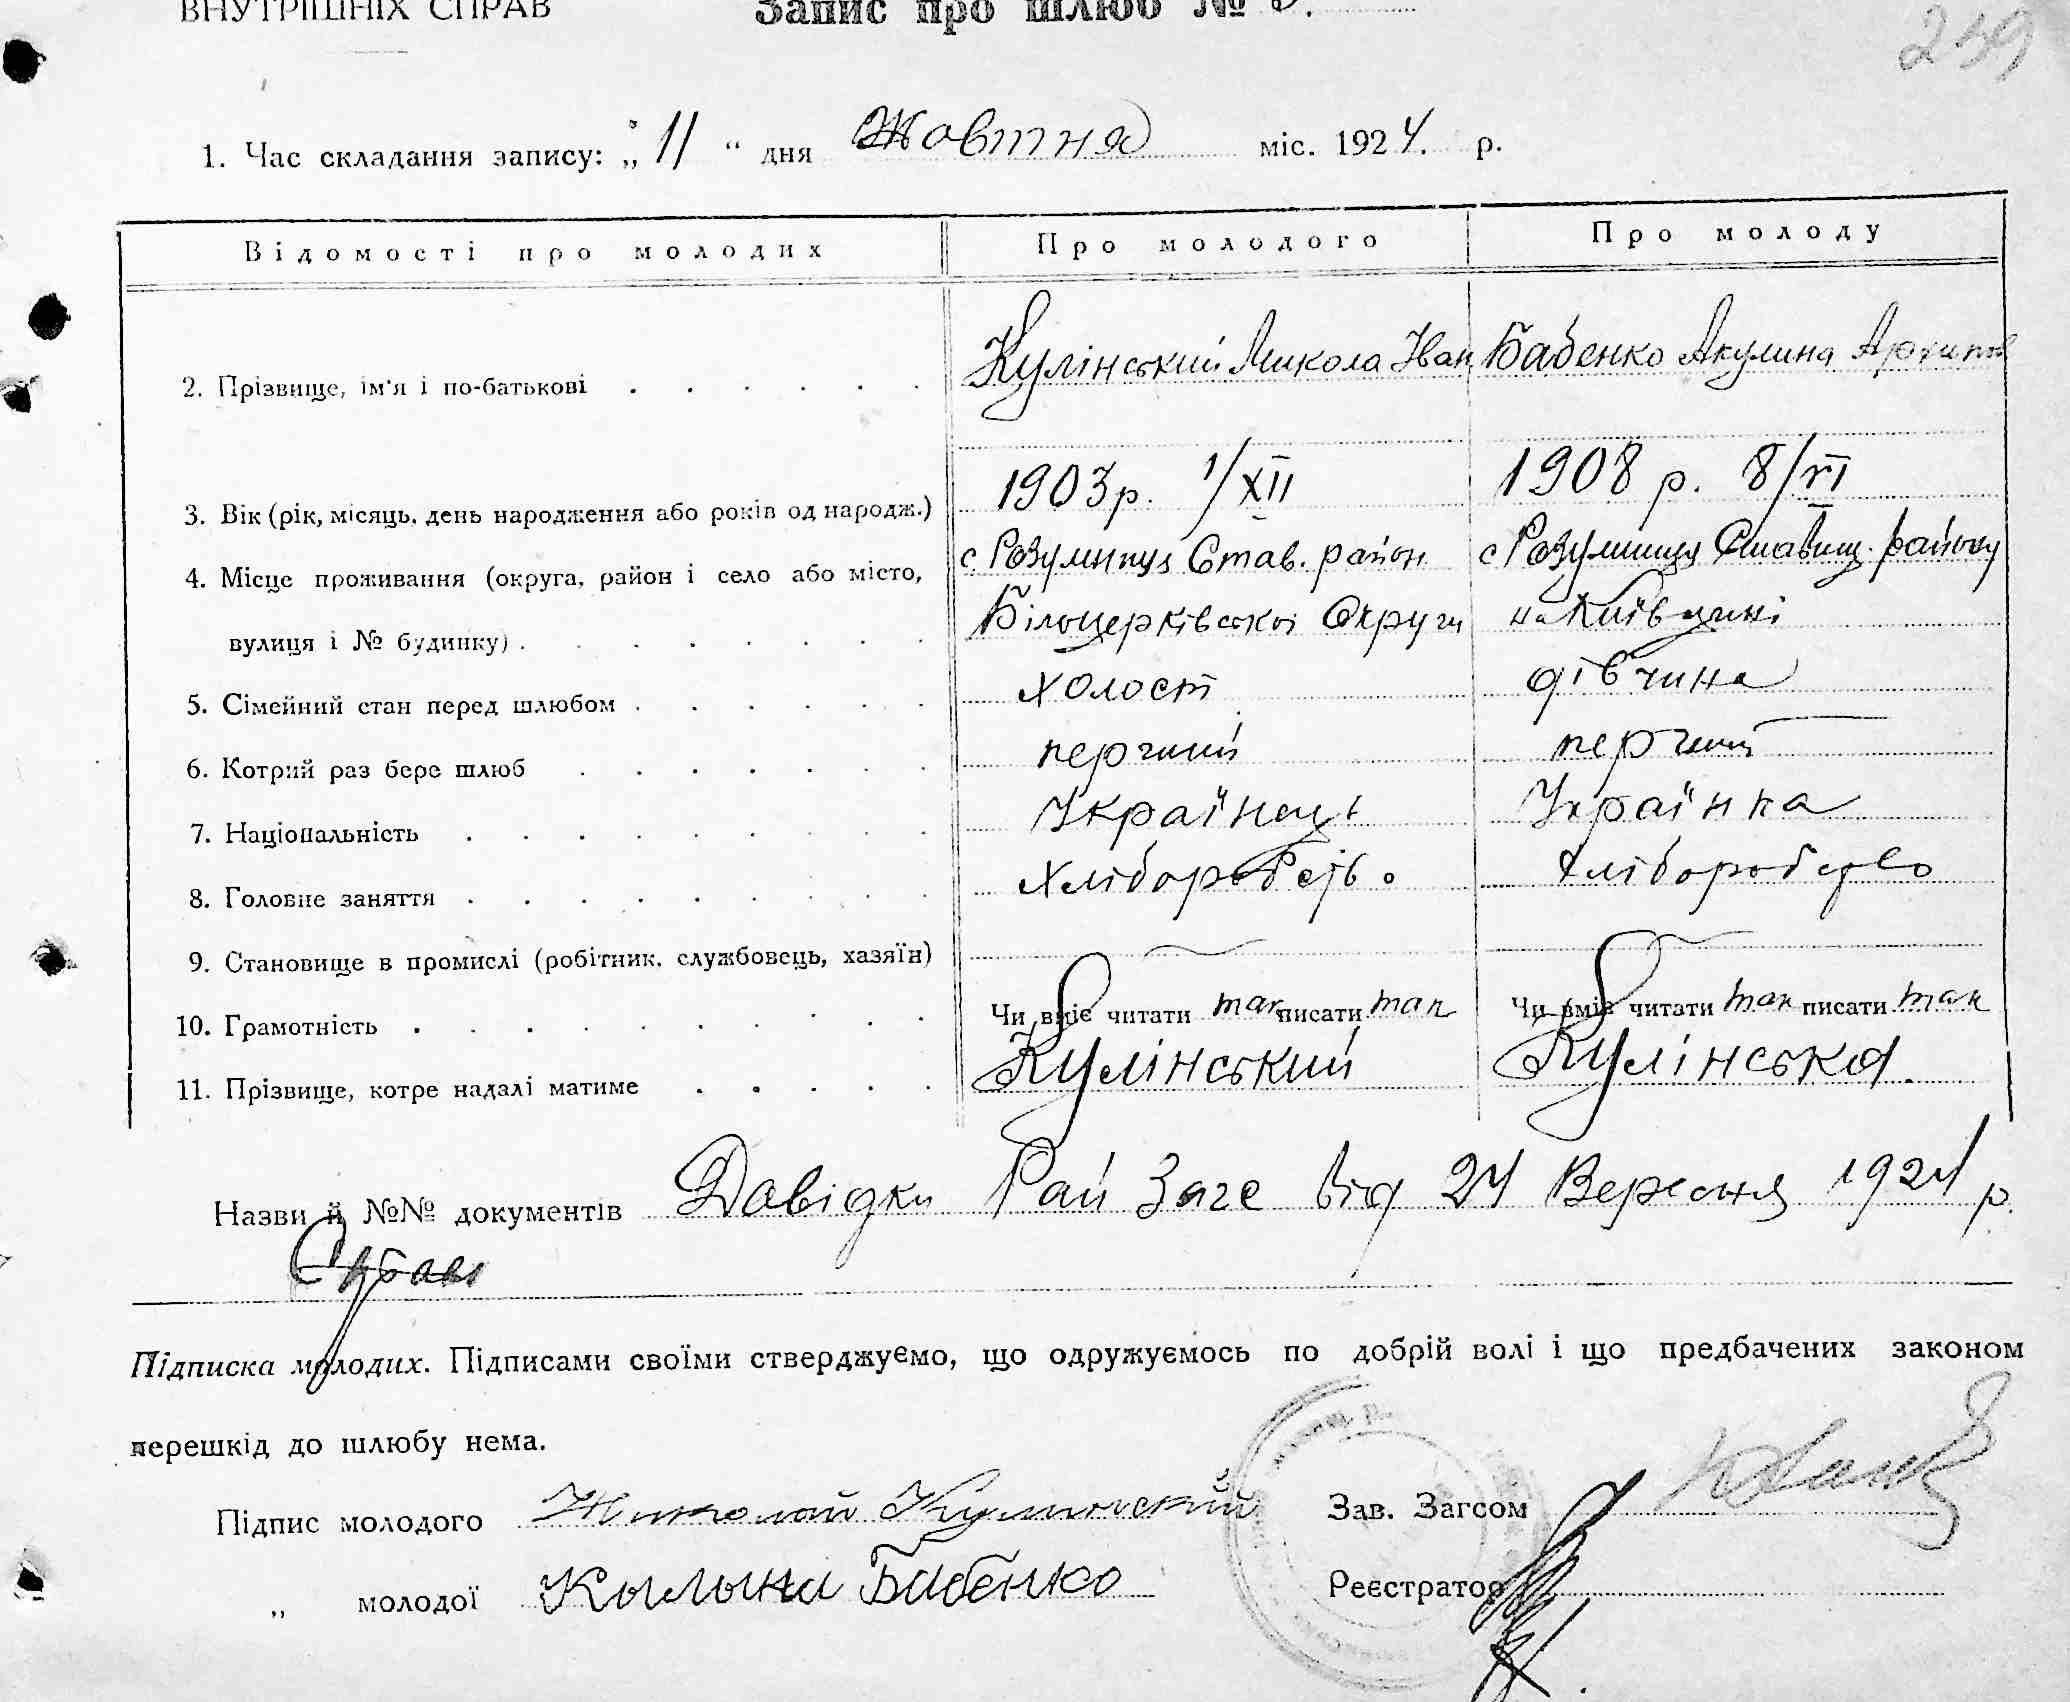 ВНУТРІШНІХ СПРАВ
Запис про шлюб №
259
1. Час складання запису: „11“ дня Жовтня міс. 1924. р.
Відомості про молодих Про молодого Про молоду
2. Прізвище, ім'я і по-батькові Кулінський Микола Іван Бабенко Акулина Архипов
3. Вік (рік, місяць, день народження або років од народж.) 1903 р. 1/XII 1908 р. 8/VI
4. Місце проживання (округа, район і село або місто, с Розумниця Став. район с Розумниця Ставищ. району
вулиця і № будинку) Білоцерківської Округи на Київщині
5. Сімейний стан перед шлюбом холост дівчина
6. Котрий раз бере шлюб перчий перчий
7. Національність Українець Українка
8. Головне заняття Хліборобств о хліборобство
9. Становище в промислі (робітник, службовець, хазяїн)
10. Грамотність Чи вміє читати так писати так Чи вміє читати так писати так
11. Прізвище, котре надалі матиме Кулінський Кулінська.
Назви й №№ документів Довідки Рай Загс від 24 Вересня 1924 р.
Підписка молодих. Підписами своїми стверджуємо, що одружуємось по добрій волі і що предбачених законом
перешкід до шлюбу нема.
Підпис молодого Николай Кулинский Зав. Загсом
„ молодої Кылына Бабенко Реєстратор